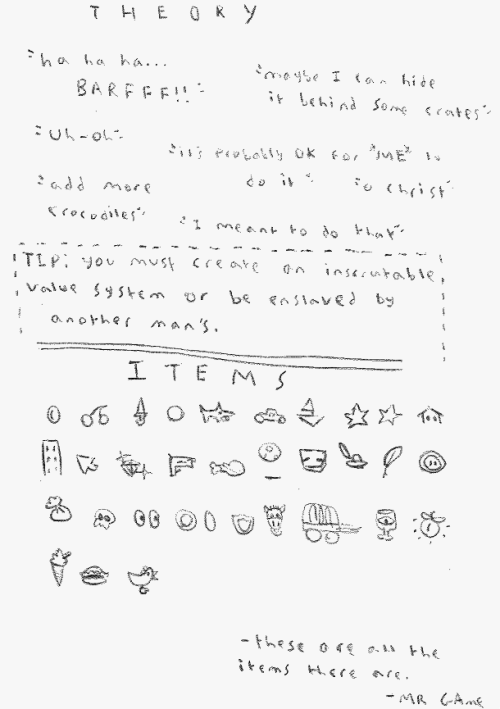 THEORY
"ha ha ha...
BARFFF!!"
"maybe I can hide
it behind some crates"
"Uh-oh"
"it's probably OK for "ME" to
do it"
"o christ"
"add more
crocodiles"
"I meant to do that"
TIP: you must create an inscrutable
value system or be enslaved by
another man's.
ITEMS
-these are all the
items there are.
-MR GAME